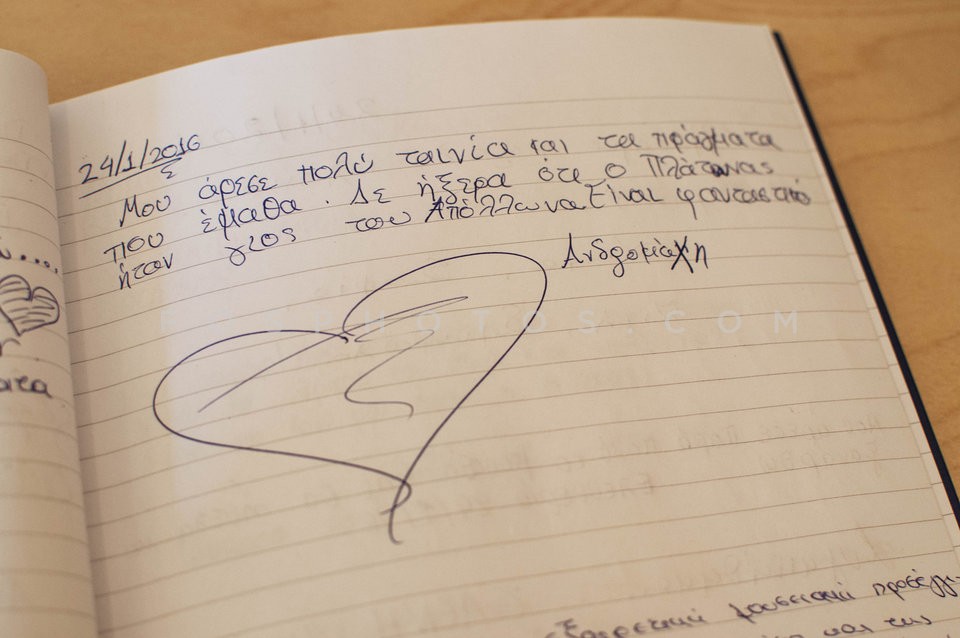 24/1/2016
Μου άρεσε πολύ ταινία και τα πράγματα
που έμαθα. Δε ήξερα ότι ο Πλάτωνας
ήταν γιος του Απόλλωνα Είναι φανταστικό
Ανδρομάχη
PHOTOS.COM
Εξαιρετική μουσειακή προσέγγι-
και της